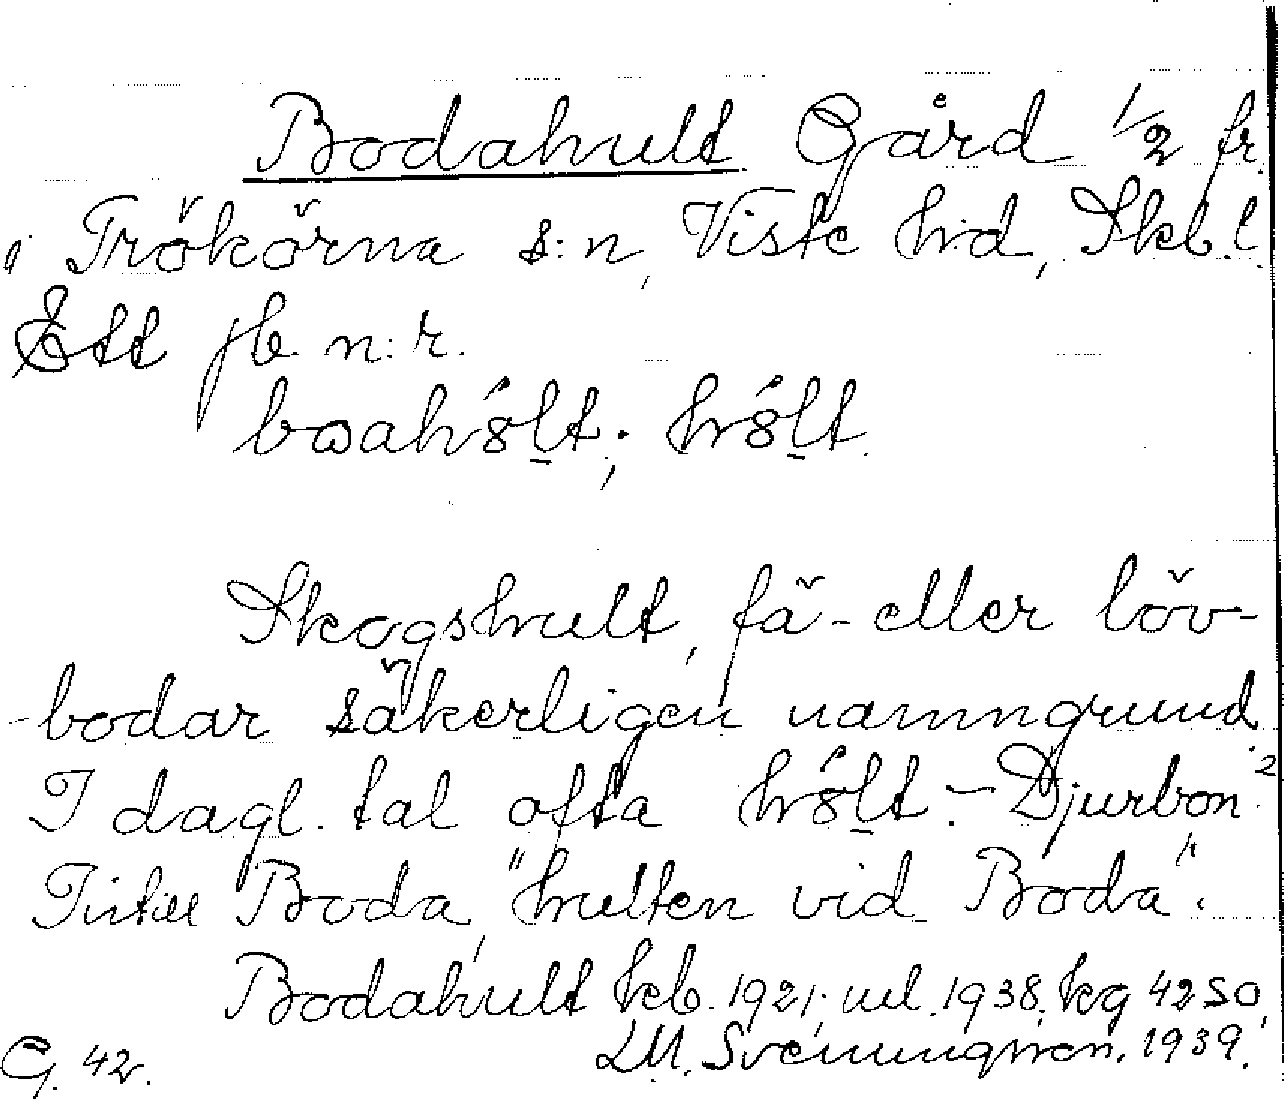 Bodahult Gård 1/2 fr.
i Trökörna s:n, Viste h:d, Skb.l.
Ett jb. n:r.
boahólt; hólt.
Skogshult, fä- eller löv-
-bodar säkerligen namngrund.
I dagl. tal ofta hólt. - Djurbon 2
Intill Boda, "hulten vid Boda".
Bodahult kb. 1921; ml. 1938; kg 42 SO,
LM. Svenungsson. 1939.
G. 42.